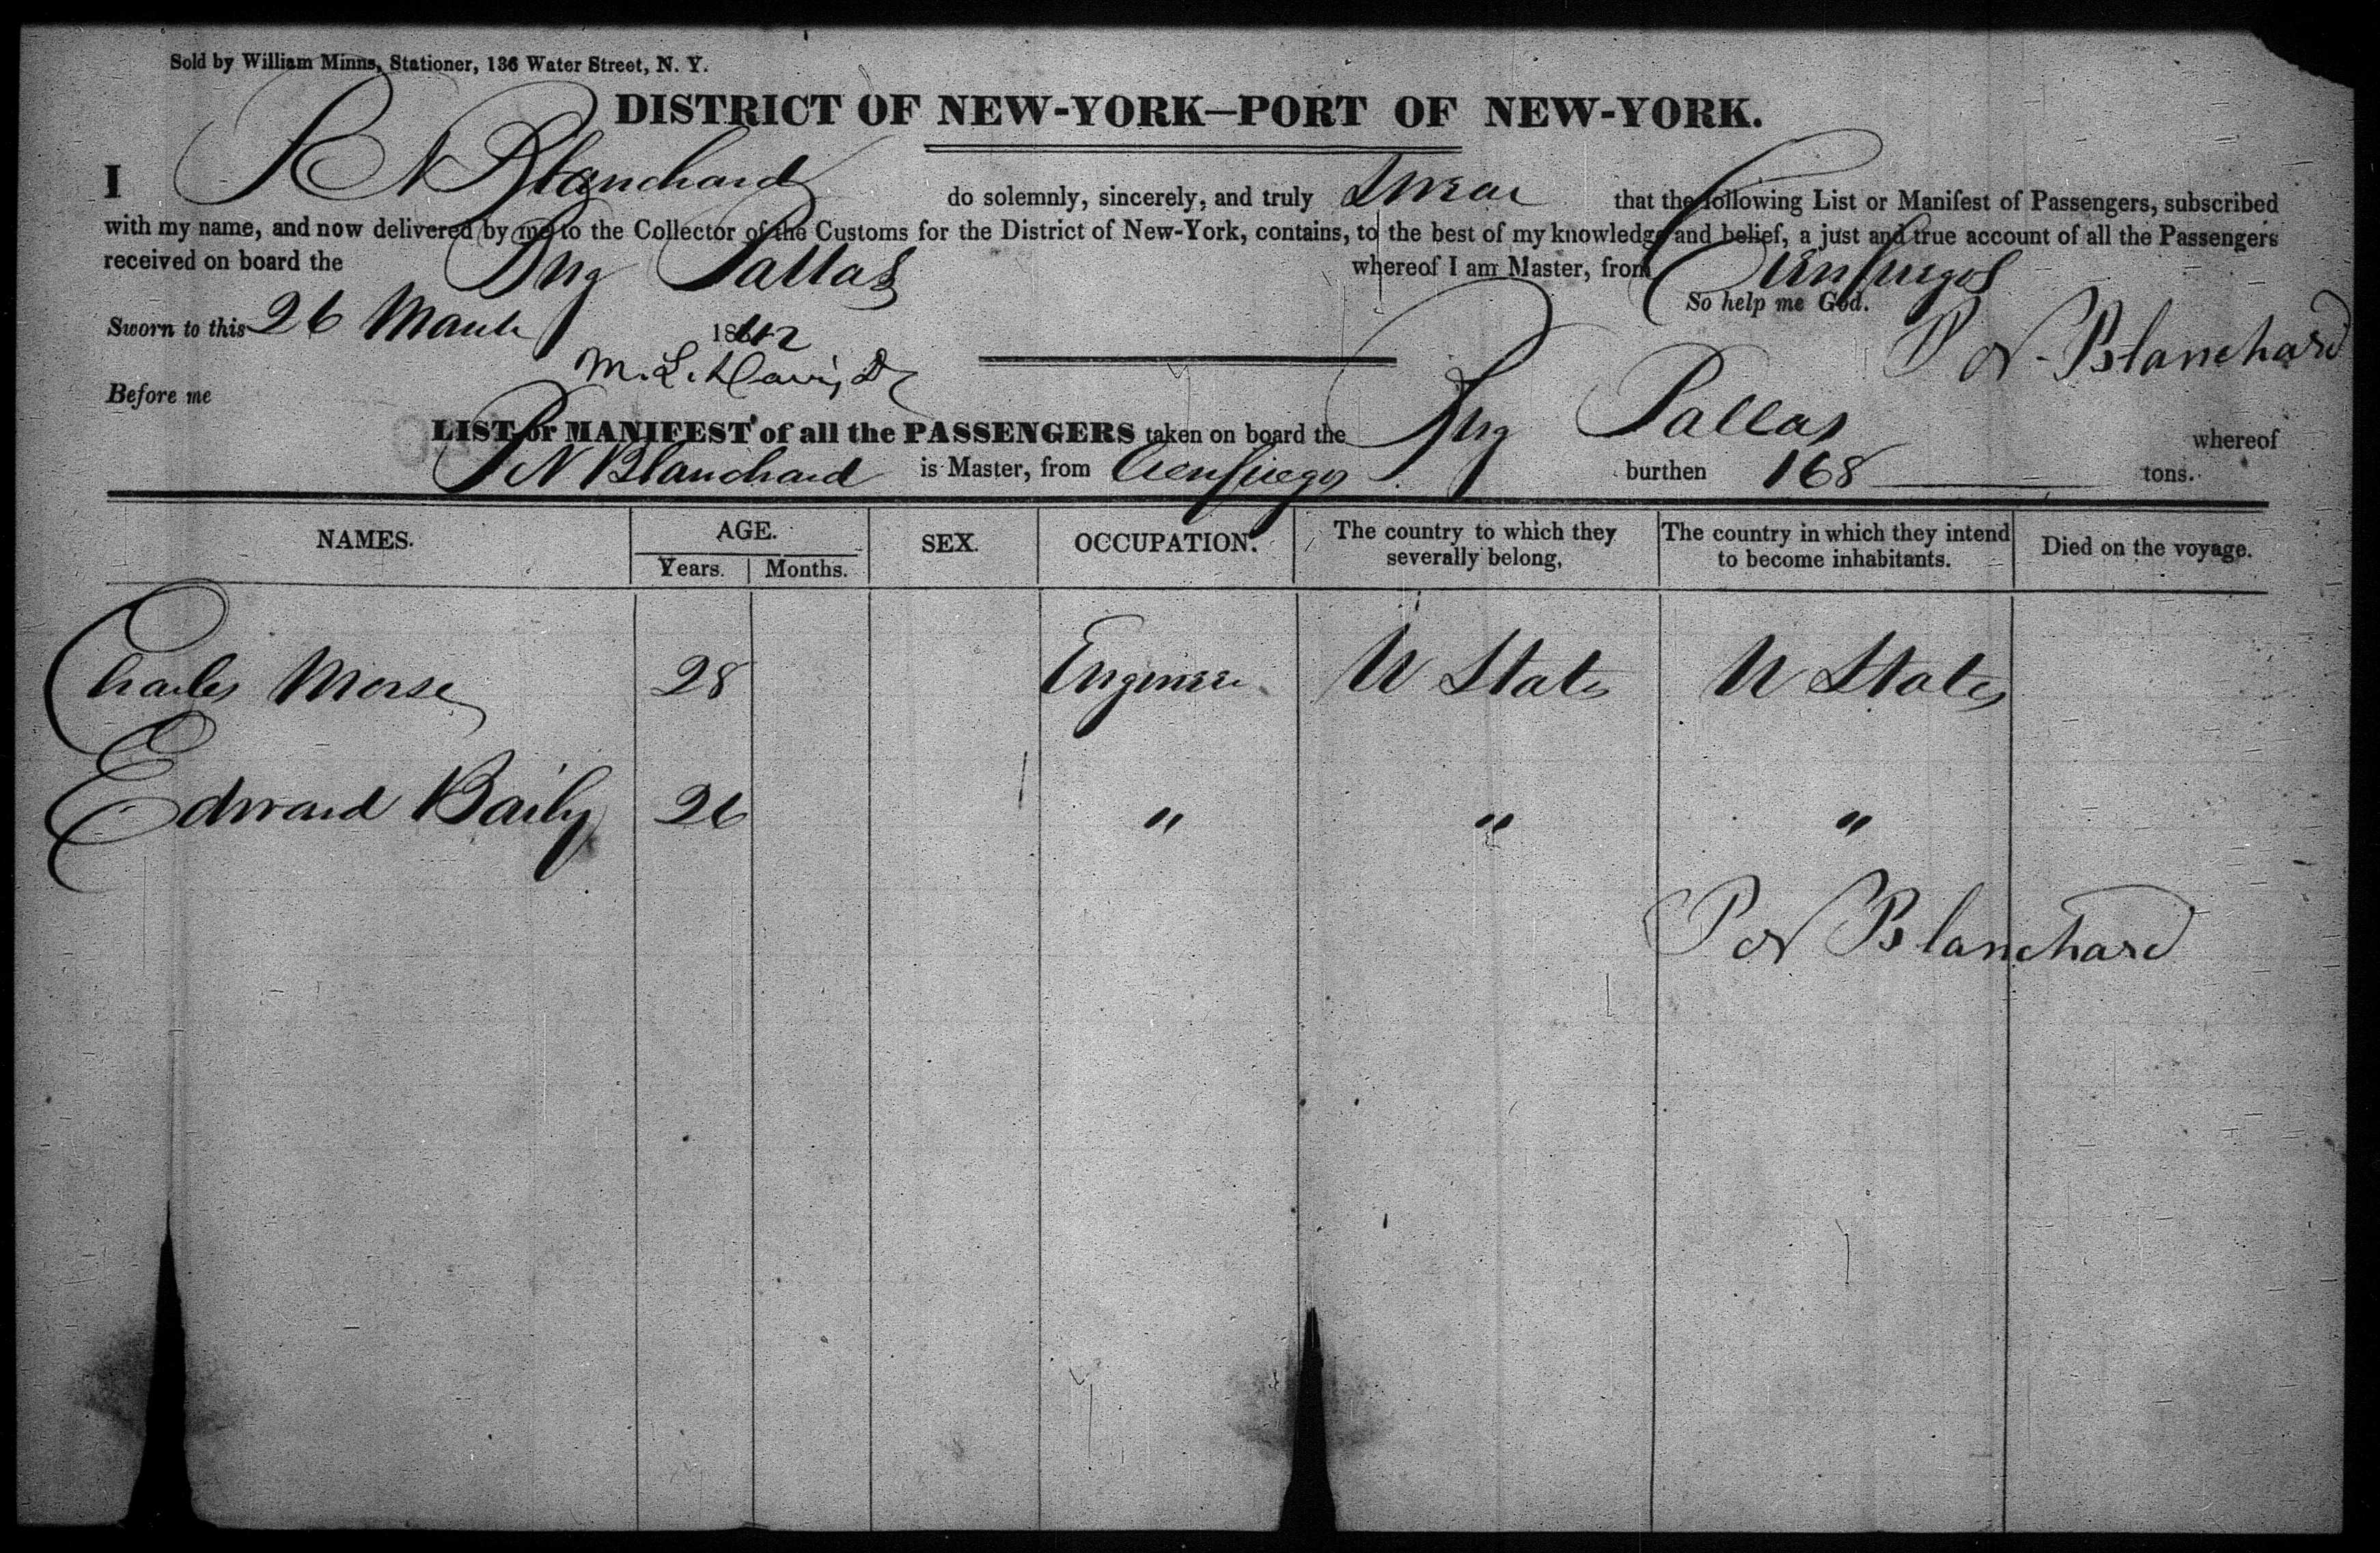 Sold by William Minns, Stationer, 136 Water Street, N. Y.
DISTRICT OF NEW-YORK—PORT OF NEW-YORK.
I P N Blanchard do solemnly, sincerely, and truly Swear that the following List or Manifest of Passengers, subscribed
with my name, and now delivered by me to the Collector of the Customs for the District of New-York, contains, to the best of my knowledge and belief, a just and true account of all the Passengers
received on board the Brig Pallas whereof I am Master, from Cienfuegos
So help me God.
Sworn to this 26 March 1842
P N Blanchard
M. L. Davis,
Before me
LIST or MANIFEST of all the PASSENGERS taken on board the Brig Pallas whereof
P N Blanchard is Master, from Cienfuegos burthen 168 tons.
NAMES. AGE. SEX. OCCUPATION. The country to which they severally belong, The country in which they intend to become inhabitants. Died on the voyage.
Years. Months.
Charles Morse 28 Engineer U States U States
Edward Baily 26 " " "
P N Blanchard